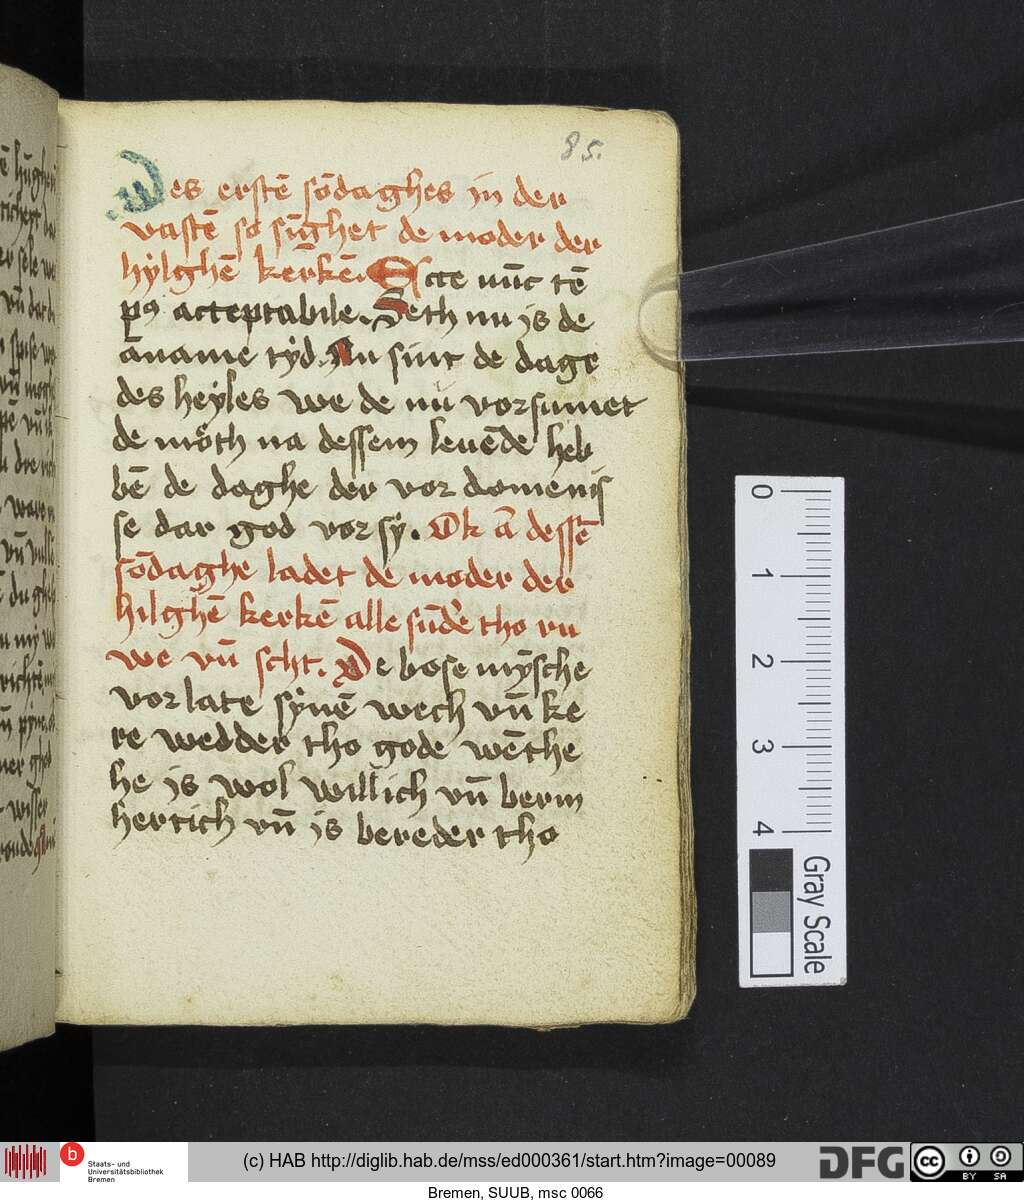 85.
Des erstē sōdaghes in der
vastē so sūghet de moder der
hylghē kerkē. Ecce nūc tē
pꝰ acceptabile. Seth nu is de
āname tyd. Nu sint de dage
des heyles we de nu vorsumet
de moͤth na dessem leuēde heb
bē de daghe der vordomenis
se dar god vor sy. Ok ā dessē
sōdaghe ladet de moder der
hilghē kerkē alle sūdē tho ru
we vn̄ scht. De bose mȳsche
vorlate synē wech vn̄ ke
re wedder tho gode wēthe
he is wol willich vn̄ berm
hertich vn̄ is bereder tho
0
1
2
3
4
Gray Scale
b
Staats- und
Universitätsbibliothek
Bremen
(c) HAB http://diglib.hab.de/mss/ed000361/start.htm?image=00089
DFG
cc
BY SA
Bremen, SUUB, msc 0066